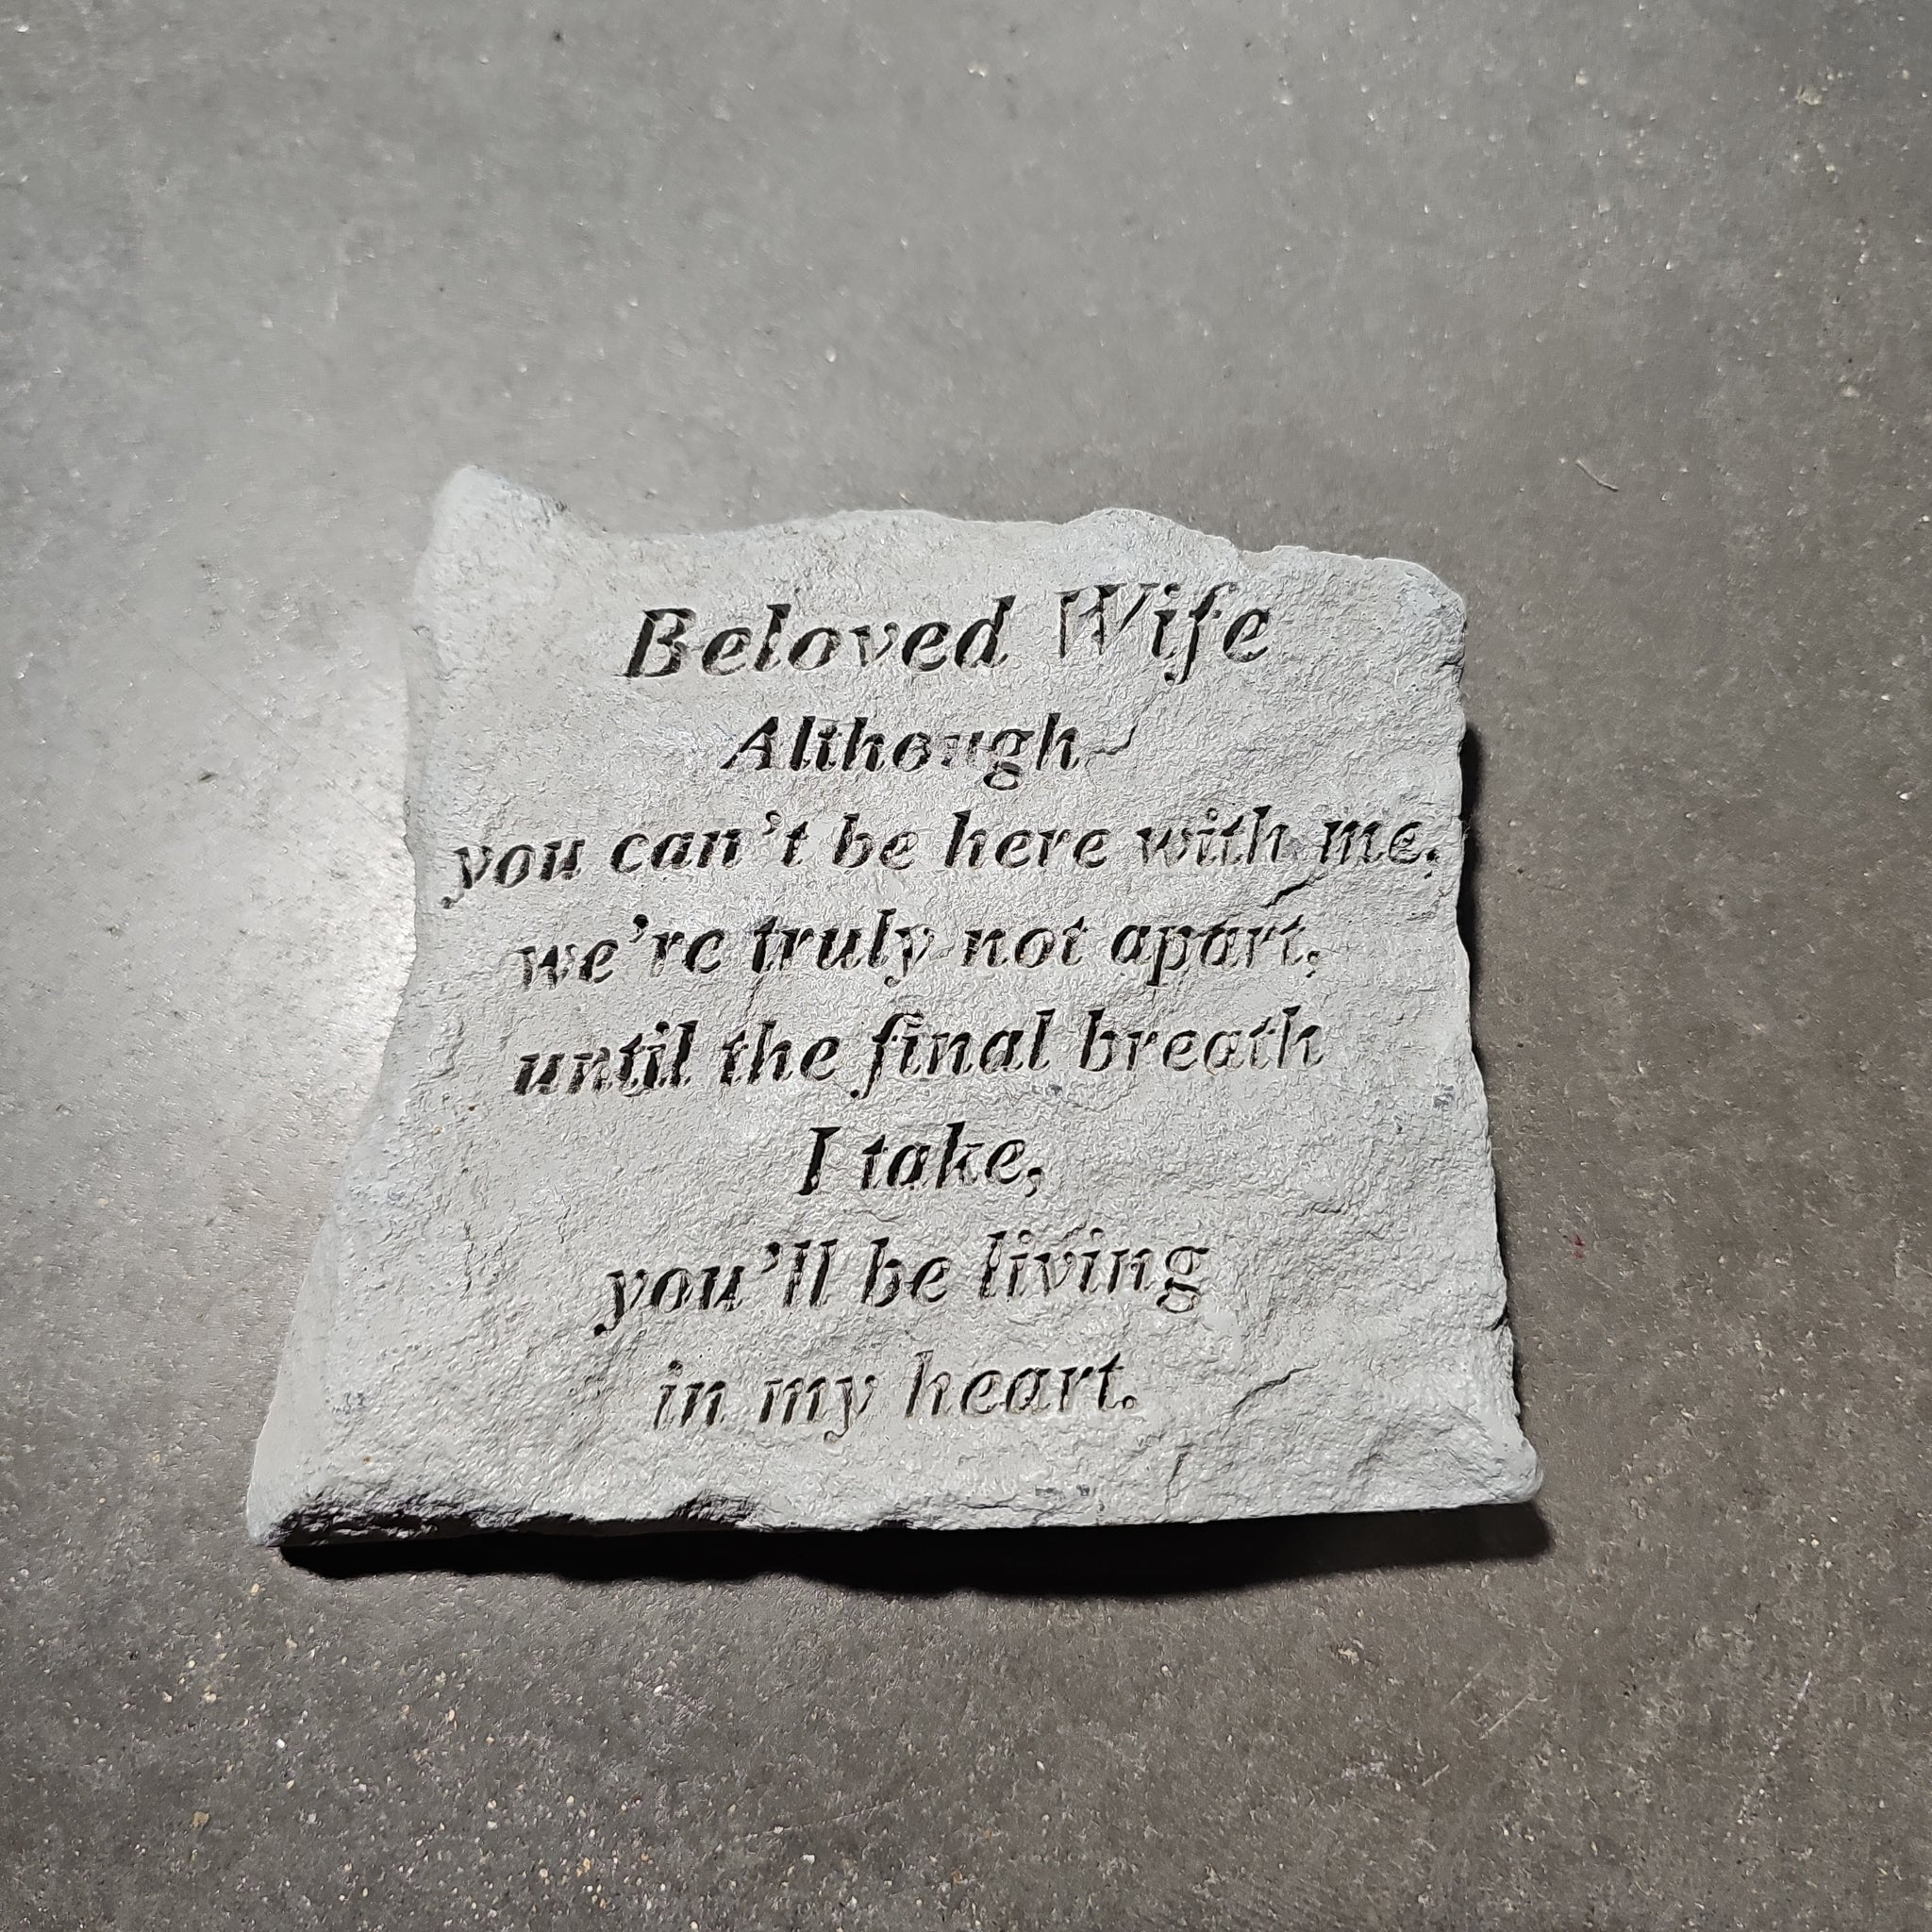 Beloved Wife
Although
you can't be here with me,
we're truly not apart,
until the final breath
I take,
you'll be living
in my heart.